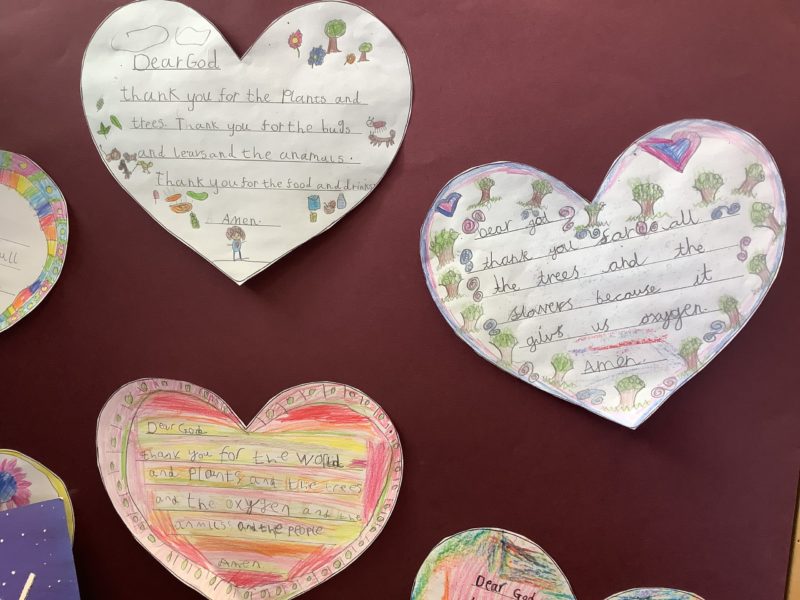 Dear God
thank you for the plants and
trees. Thank you for the bugs
and leavs and the anamals.
Thank you for the food and drinks.
Amen.
Dear god
thank you for all
the trees and the
flowers because it
givs us oxygen.
Amen.
ull
Dear God
thank you for the world
and plants and the trees
and the oxygen and the
anmils and the people
Amen
Dear God